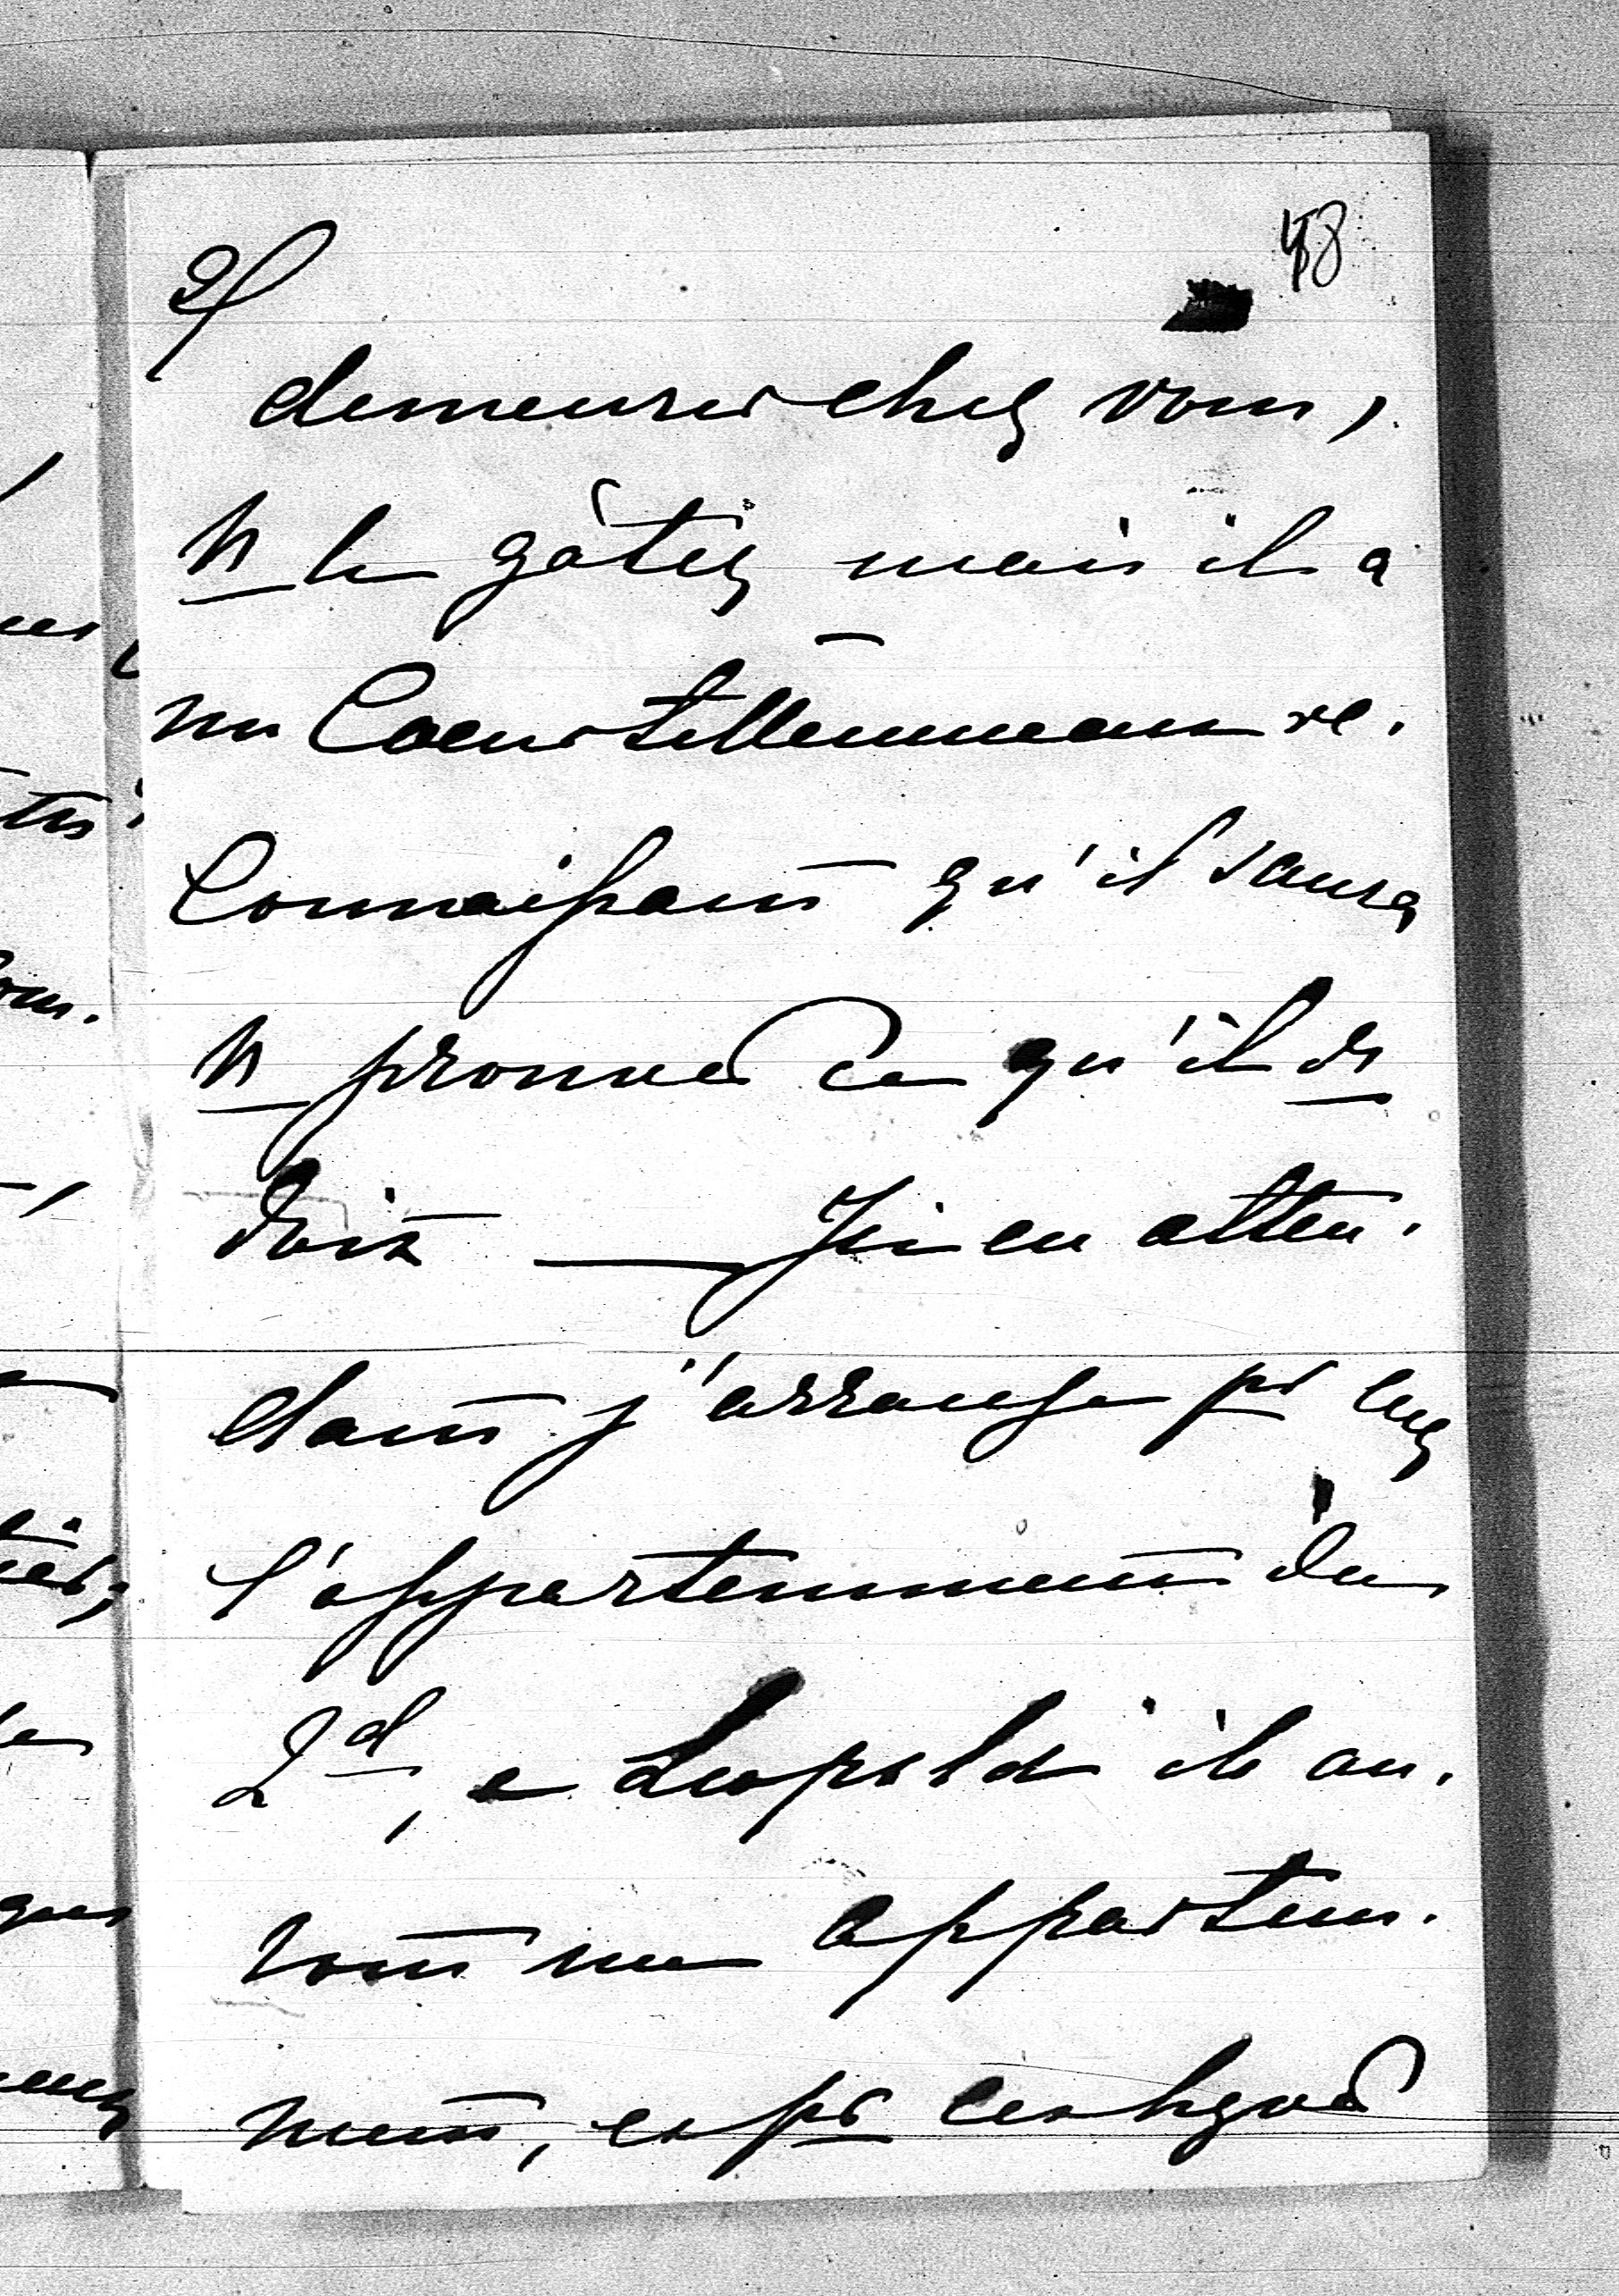 2/
48
demeurer chez vous,
Vs le gâtez mais il a
un Coeur tellemment re.
connaissant qu'il saura
Vs prouver ce qu'il vs
doit — Ici en atten.
dant j'arrange pr eux
l'appartemment du
2d, e Leopold ils au.
ront un appartem.
ment, es pr